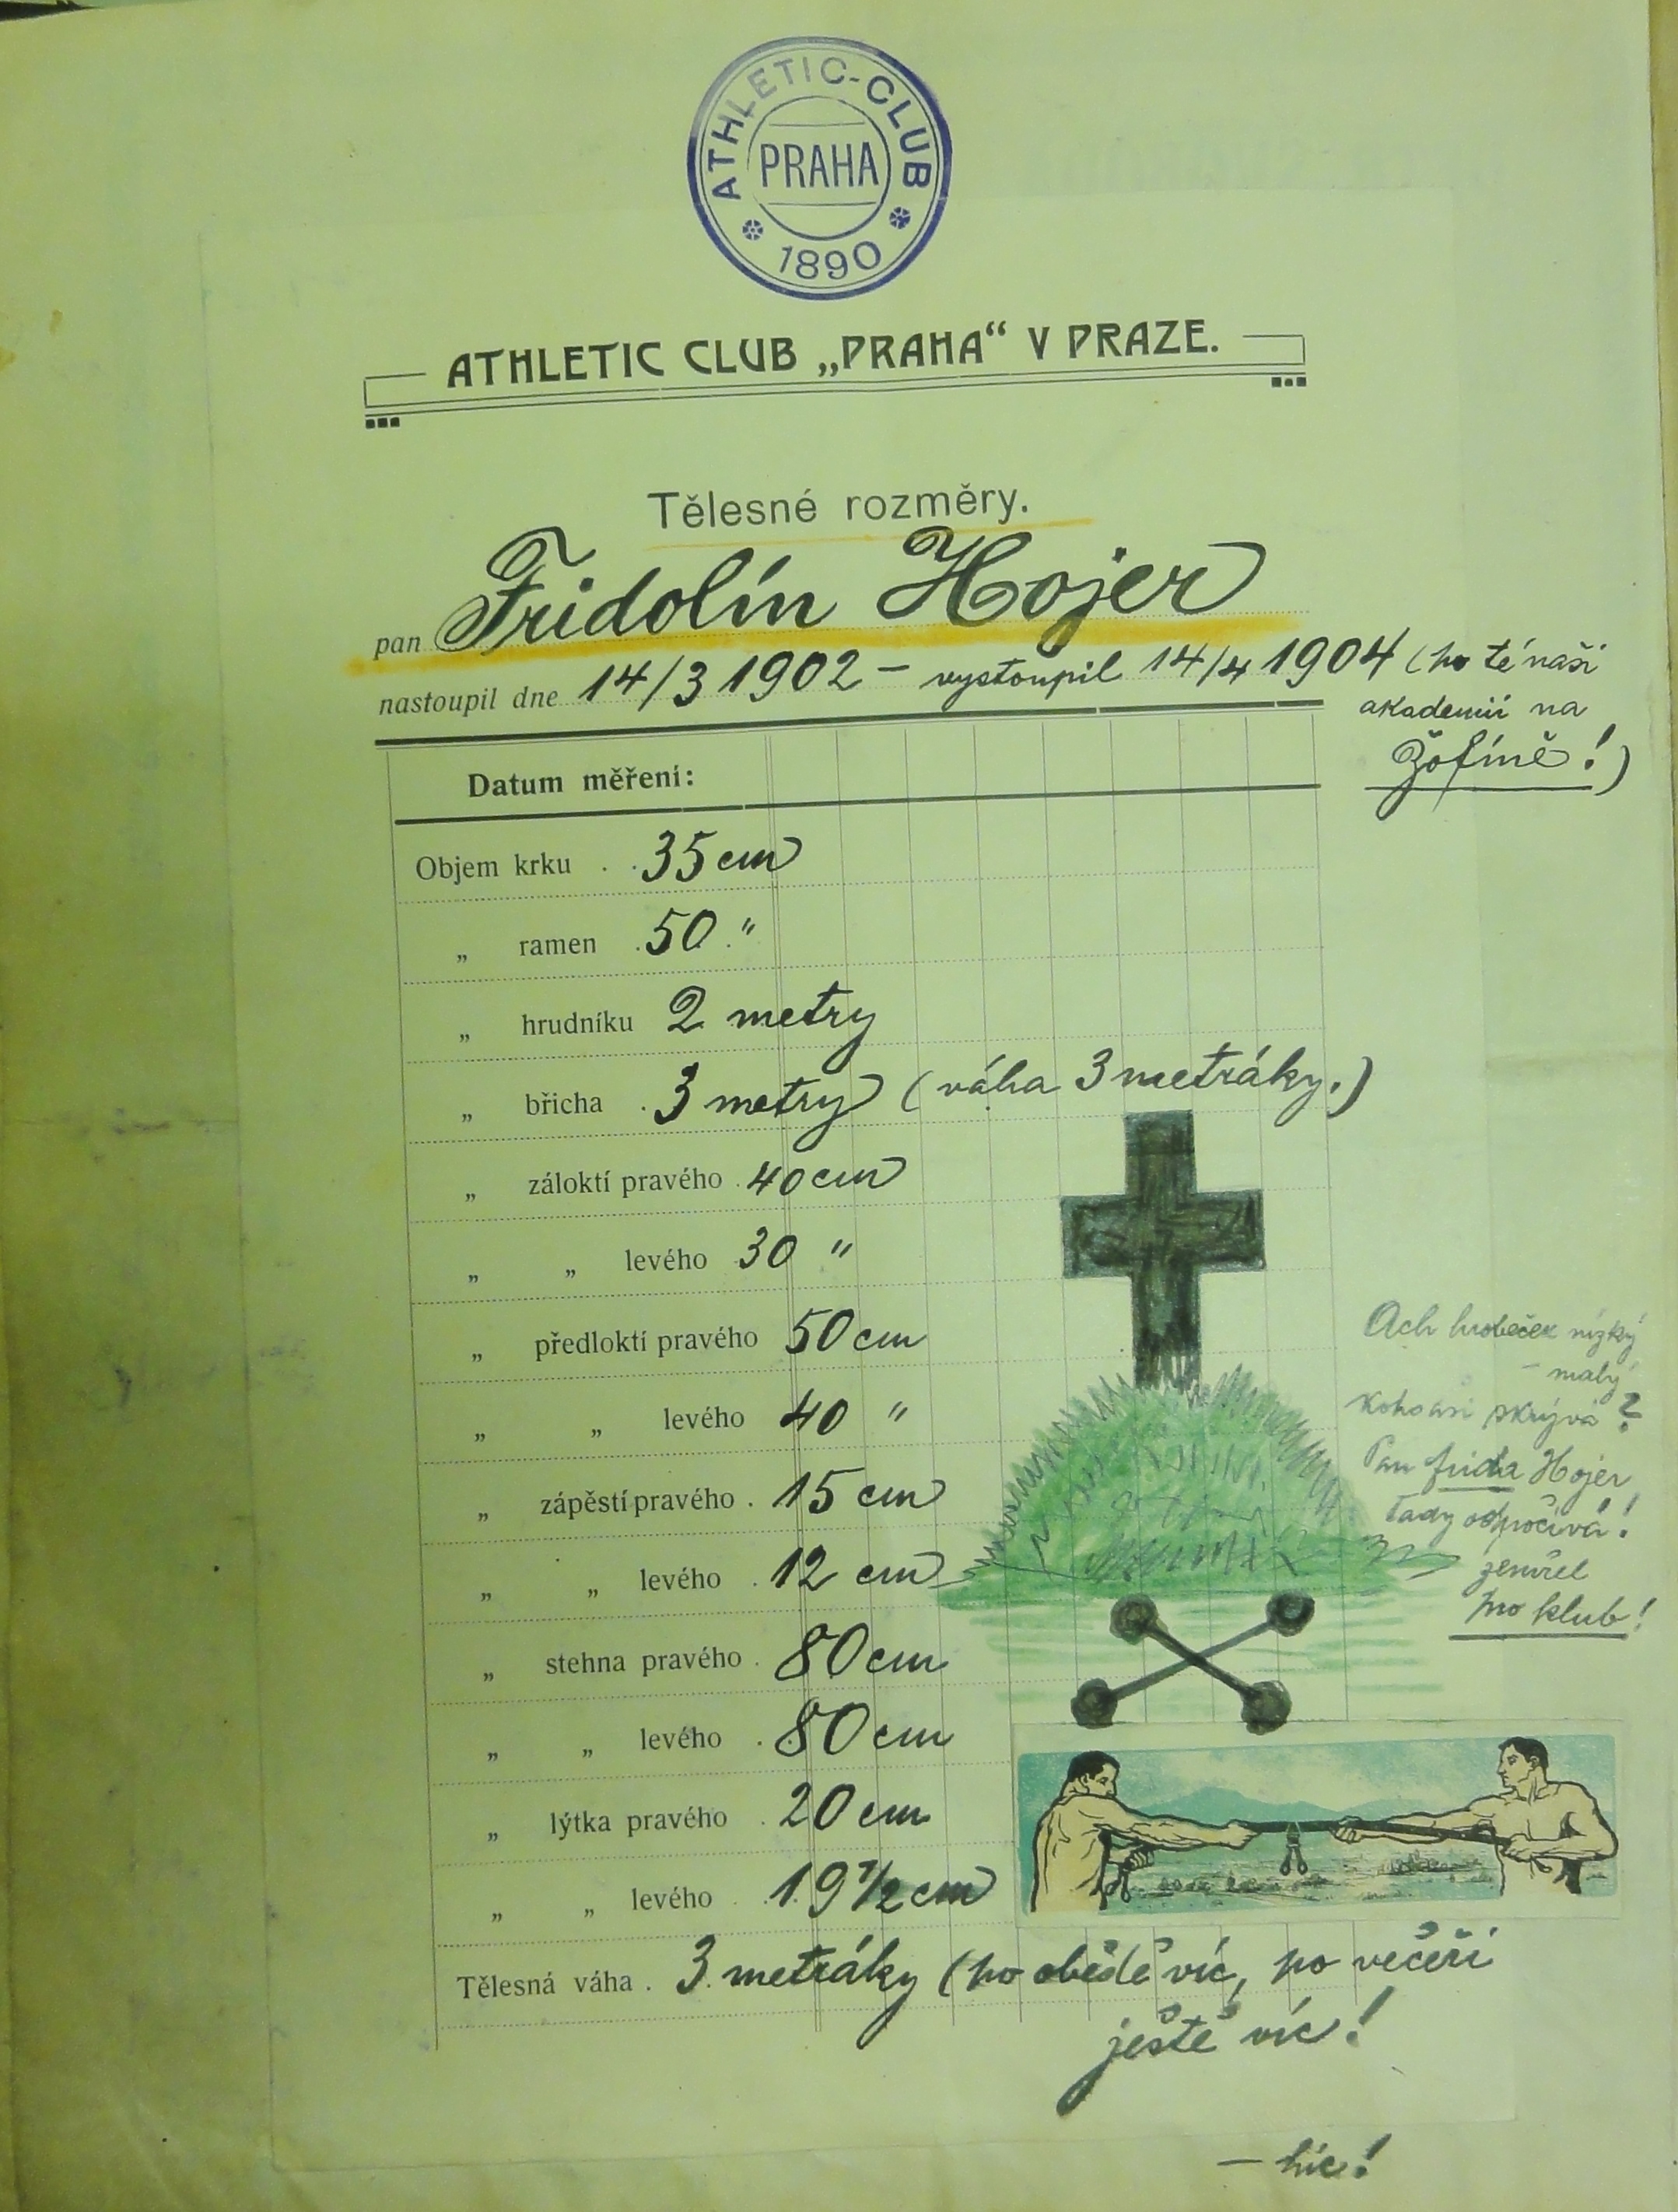 ATHLETIC-CLUB
PRAHA
1890
ATHLETIC CLUB „PRAHA“ V PRAZE.
Tělesné rozměry.
pan Fridolín Hojer
nastoupil dne 14/3 1902 – vystoupil 14/4 1904 (po té naší
akademii na
Žofíně!)
Datum měření:
Objem krku . . 35 cm
„ ramen . 50 "
„ hrudníku 2 metry
„ břicha . 3 metry (váha 3 metráky.)
„ záloktí pravého . 40 cm
„ „ levého 30 "
„ předloktí pravého 50 cm
„ „ levého 40 "
„ zápěstí pravého . 15 cm
„ „ levého . 12 cm
„ stehna pravého . 80 cm
„ „ levého . 80 cm
„ lýtka pravého . 20 cm
„ „ levého . 19 1/2 cm
Tělesná váha . 3 metráky (po obědě víc, po večeři
ještě víc!
– híc!
Ach hrobeček nízký
– malý
koho asi skrývá?
Pan Frida Hojer
tady odpočívá!
zemřel
pro klub!